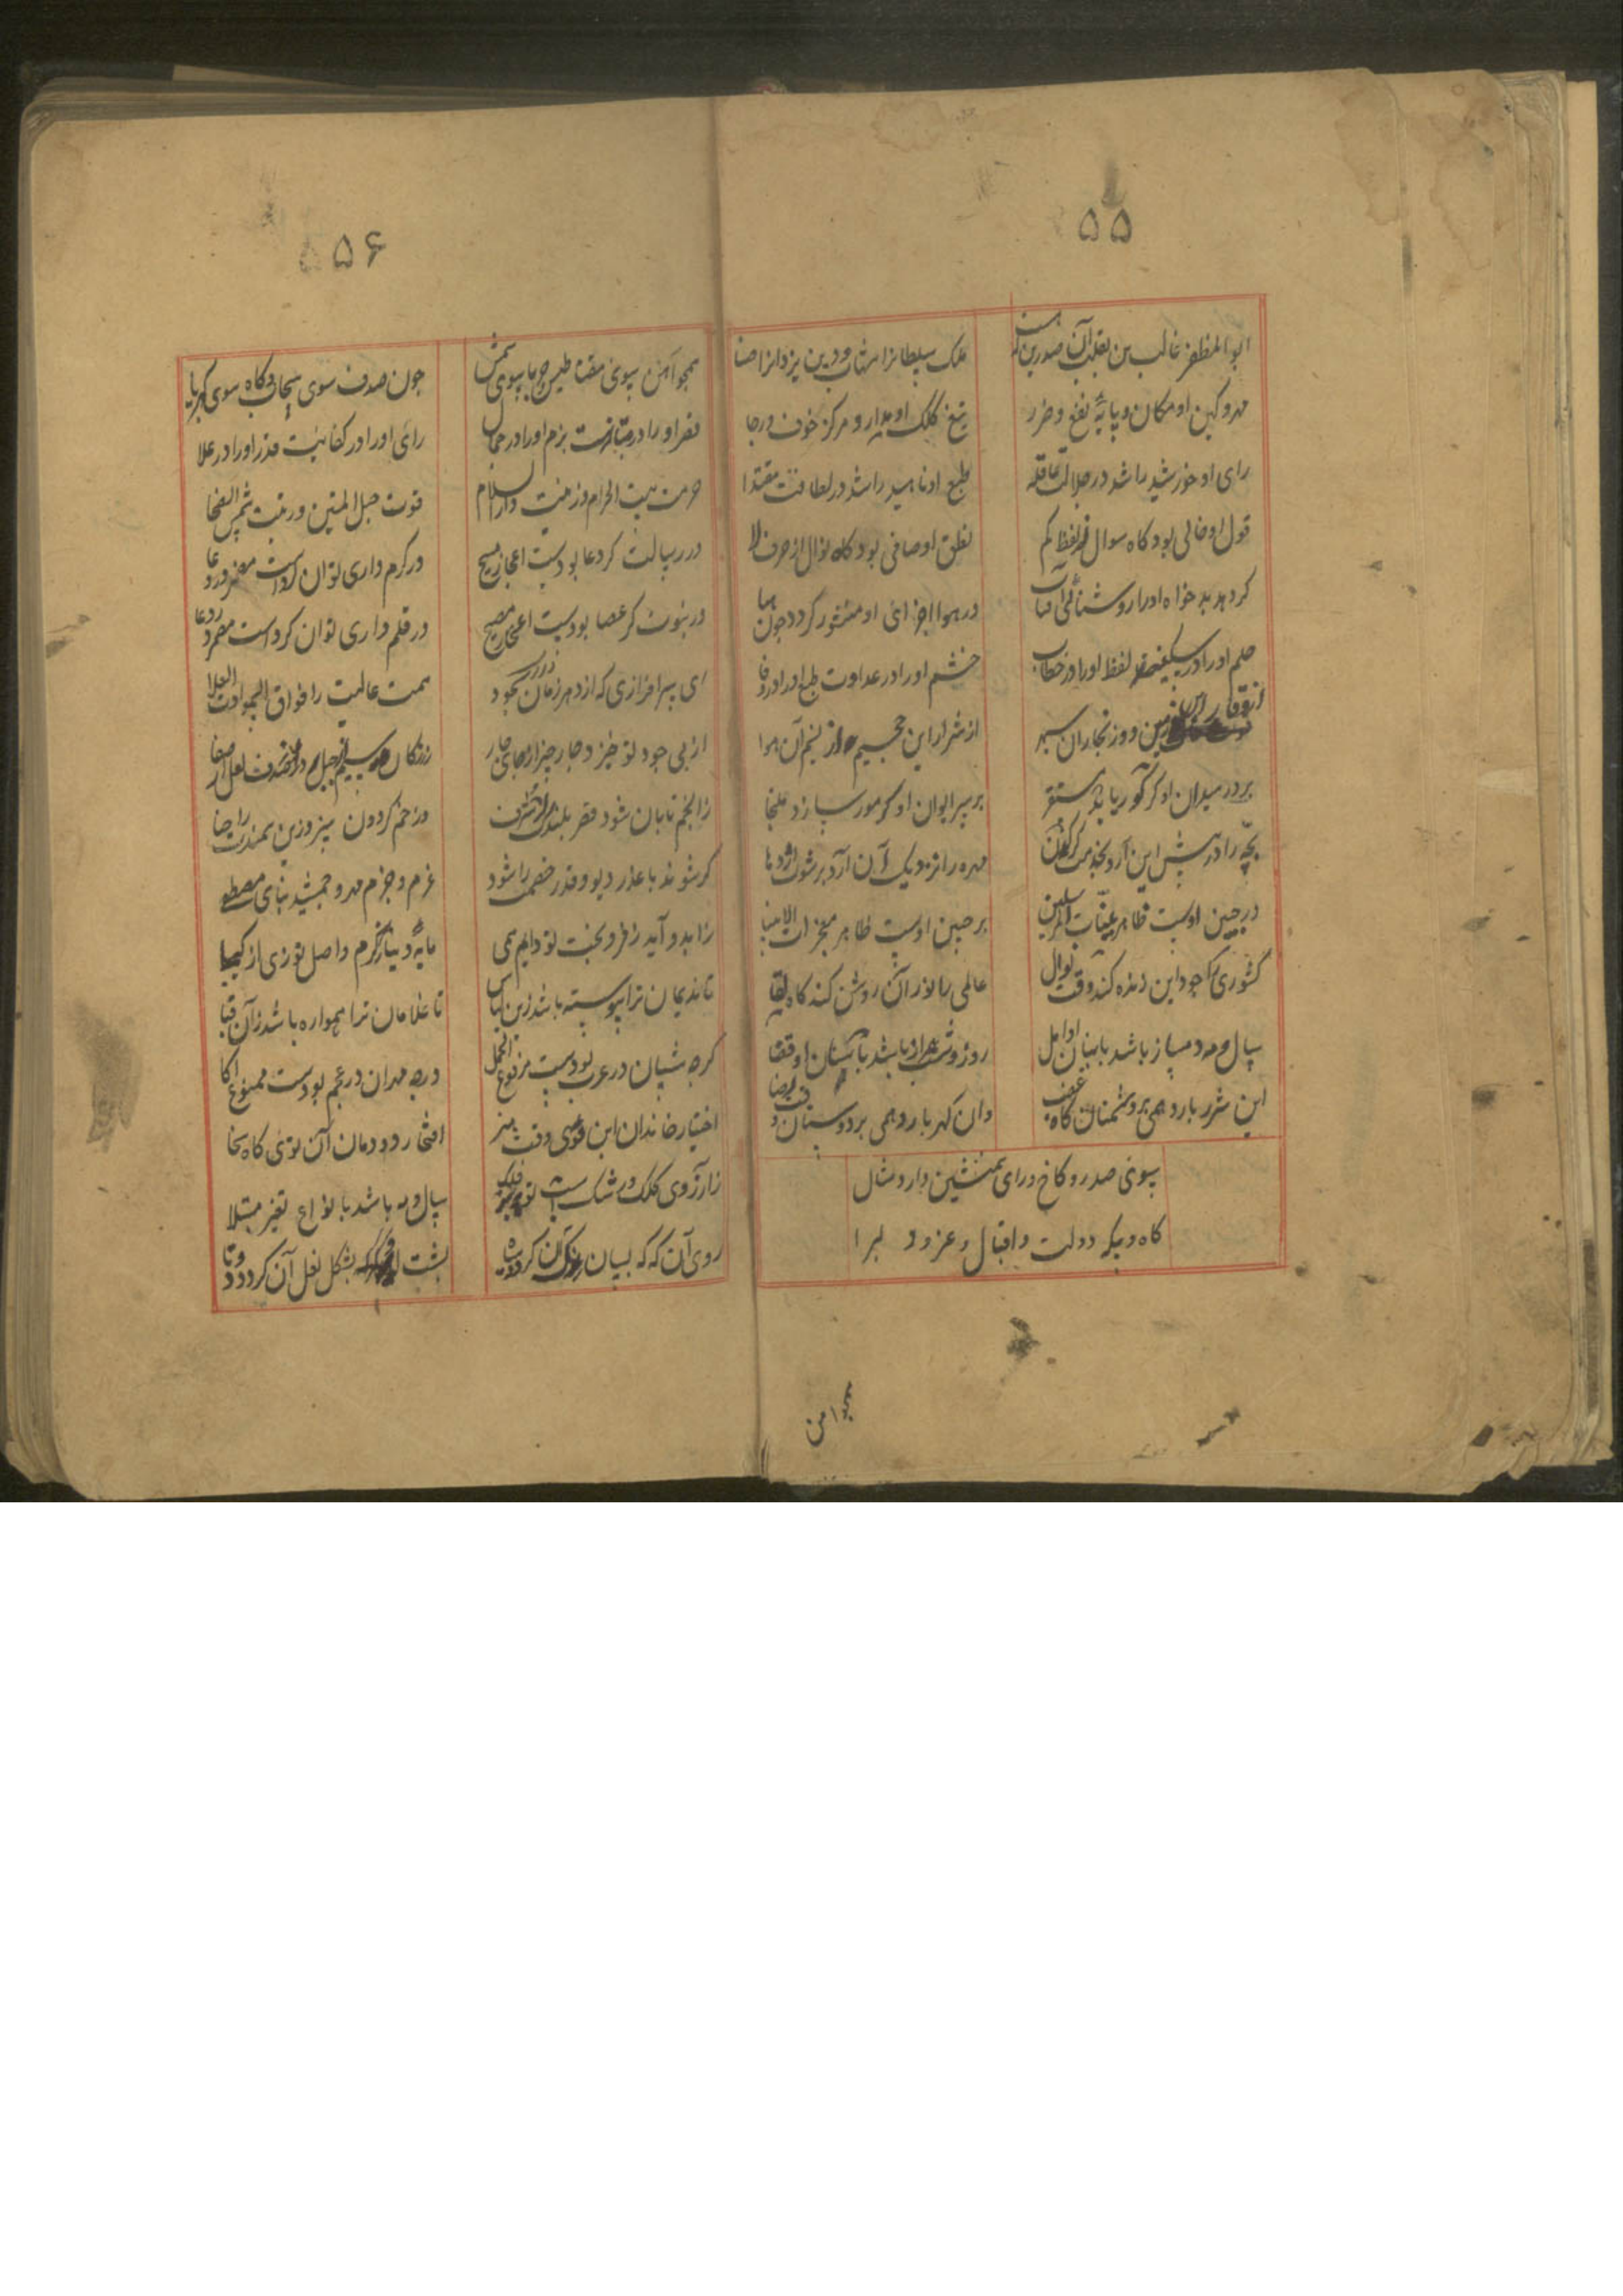 ۵۵
ابوالمظفر غالب بن تغلب آن صدری که هست ملک سلطانرا شهاب و دین یزدانرا ضیا
مهر و کین او مکان و پایهٔ نفع و ضرر تیغ و کلک او مدار و مرکز خوف و رجا
رای او خورشید را شد در جلالت عاقله طبع او ناهید را شد در لطافت مقتدا
قول او خالی بود گاه سوال از لفظ لم نطق او صافی بود گاه نوال از حرف لا
گر دهد بدخواه او را روشنائی آفتاب در هوا اجزای او منثور گردد چون هبا
حلم او را در سکینه لفظ او را در خطاب خشم او را در عداوت طبع او را در وفا
از وقار این زمین و وز بخار آن سپهر از شرار این جحیم و از نسیم آن هوا
بر در میدان او گر گور یابد مستقر بر سر ایوان او گر مور سازد ملتجا
بچه را در پیش این آرد بخدمت کرگدن مهره را نزدیک آن آرد برشوت اژدها
در جبین اوست ظاهر بینات المرسلین بر جبین اوست ظاهر معجزات الانبیا
کشوری را جود این زنده کند وقت نوال عالمی را نور آن روشن کند گاه لقا
سال و مه دمساز باشد با بنان او امل روز و شب همراز باشد با سنان او قضا
این شرر بارد همی بر دشمنان گاه غضب وان گهر بارد همی بر دوستان وقت رضا
سوی صدر و کاخ و رای همنشین دارد مثال
گاه و بیگه دولت و اقبال و عز و
همچو آهن
۵۶
همچو آهن سوی مغناطیس چو یا سوی شمش چون صدف سوی سحاب و کاه سوی کهربا
قصر او را در بزم او را در جمال رای او را در کفایت قدر او را در علا
حرمت بیت الحرام و زینت دارالسلام قوت حبل المتین و رتبت شمس الضحا
در رسالت گر دعا بودست اعجاز مسیح در کرم داری توان کرد است
در نبوت گر عصا بودست اعجاز در قلم داری توان کرد است
ای سرافرازی که از دهر زمان سجود همت عالیت را فوق السموات العلا
از پی جود تو خیزد چار چیز از جای چار زر ز کان سیم از جبل در از صدف لعل از صفا
ز انجم تابان شود قصر بلندت را شرف وز خم گردون سبز وزین سمندت را حنا
گر شوند با عذر دیو و قدر خصمت را شود عزم و حزم مهر و جمشید بنای مصطفی
زاید و آید ز فر و بخت تو دایم همی مایهٔ دینار از کرم واصل تو زی از کیمیا
تا ندیمان ترا پیوسته باشد زین لباس تا غلامان ترا همواره باشد زان قبا
گره شیبان در عرب بودست مرفوع المحل دره مهران در عجم بودست ممنوع
اختیار خاندان این توئی وقت هنر افتخار دودمان آن توئی گاه سخا
ز آرزوی کلک و رشک سال و مه باشد با نواع تغیر مبتلا
روی آن گه گه بسان رنگ آن گردد سیاه پشت این گه گه بشکل نعل آن گردد دوتا